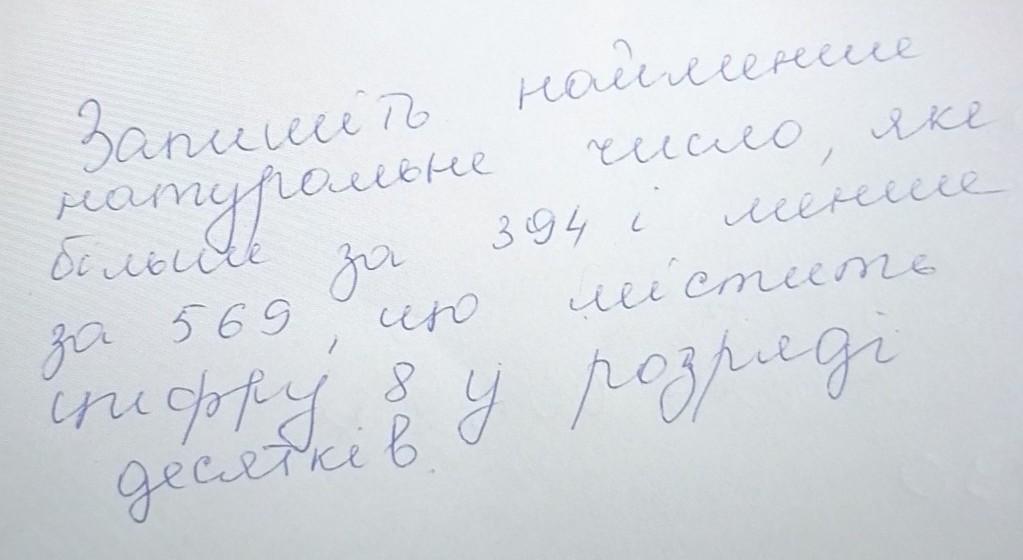 Запишіть найменше
натуральне число, яке
більше за 394 і менше
за 569, що містить
цифру 8 у розряді
десятків.